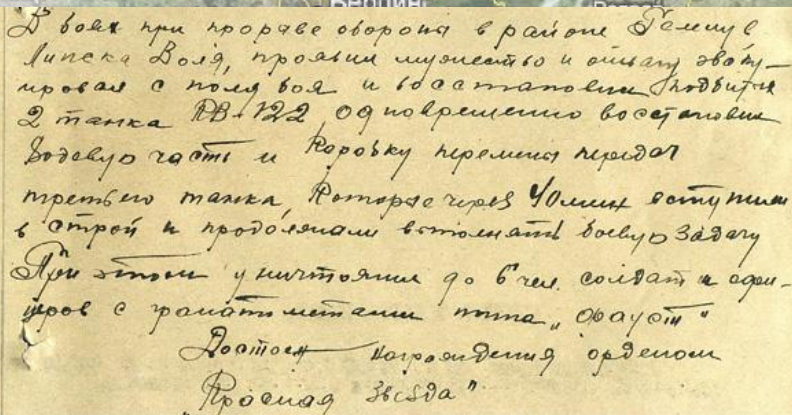 В боях при прорыве обороны в районе
Липска Воля, проявил мужество и отвагу эваку-
ировал с поля боя и восстановил подбитых
2 танка ИС-122 одновременно восстановил
ходовую часть и коробку перемены передач
третьего танка, которые через 40 мин вступили
в строй и продолжали выполнять боевую задачу
При этом уничтожил до 6 чел. солдат и офи-
церов с гранатометами типа „Фауст"
Достоин награждения орденом
„Красная звезда"